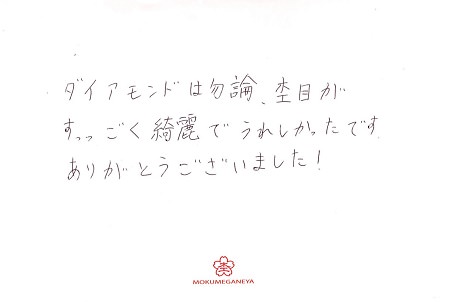 ダイアモンドは勿論、杢目が
すっっごく綺麗でうれしかったです
ありがとうございました!
MOKUMEGANEYA